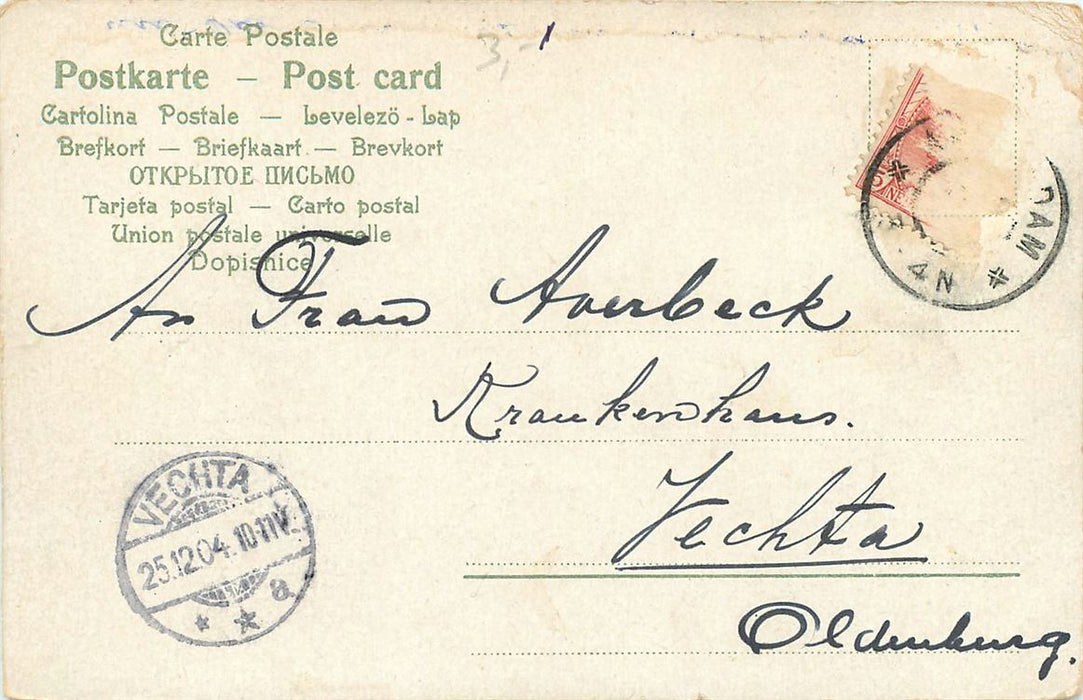 Carte Postale
Postkarte – Post card
Cartolina Postale — Levelező - Lap
Brefkort — Briefkaart — Brevkort
ОТКРЫТОЕ ПИСЬМО
Tarjeta postal — Carto postal
Union postale universelle
Dopisnice
3,-
5
NE
DAM
4N
An Frau Averbeck
Krankenhaus.
Vechta
Oldenburg.
VECHTA
25.12.04. 10-11V.
* * a